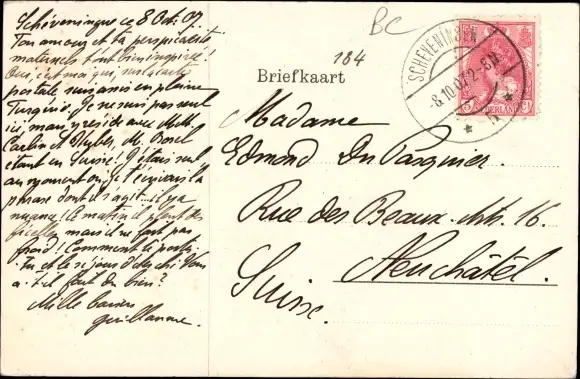 Schéveningue ce 8 Oct. 07.
Ton amour et ta perspicacité
maternels t'ont bien inspirée!
Oui, c'est moi qui, sur la carte
postale suis assis en pleine
Turquie. Je ne suis pas seul
ici, mais y réside avec M.M.
Carlin et M. Borel
étant en Suisse! J'étais seul
au moment où je t'écrivais la
phrase dont il s'agit. il y a
nuance! Le matin il pleut des
ficelles mais il ne fait pas
froid! Comment te portes-
tu et le séjour d'
a-t-il fait du bien?
Mille baisers
Guillaume.
BC
184
Briefkaart
SCHEVENINGEN
8.10.07 2-3N
NEDERLAND
Madame
Edmond Du Pasquier.
Rue des Beaux-Arts. 16.
Neuchâtel.
Suisse.